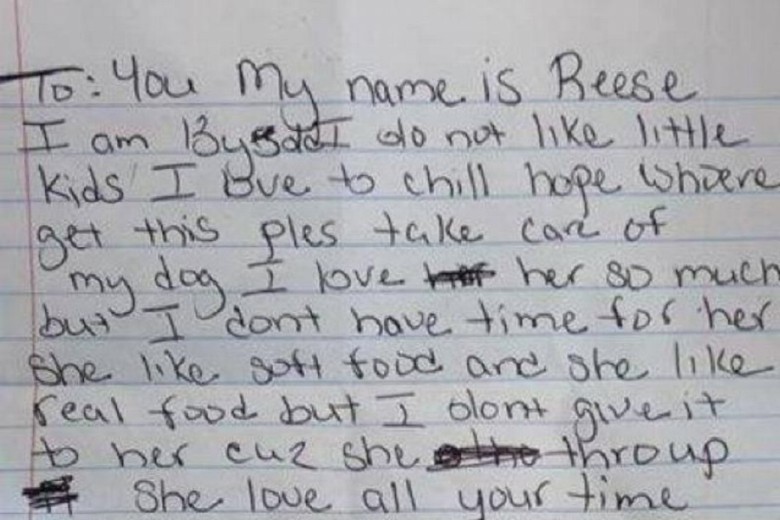 To: You My name is Reese
I am 13 yrs old I do not like little
kids I love to chill hope whoere
get this ples take care of
my dog I love her so much
but I dont have time for her
She like soft food and she like
real food but I dont give it
to her cuz she throup
She love all your time